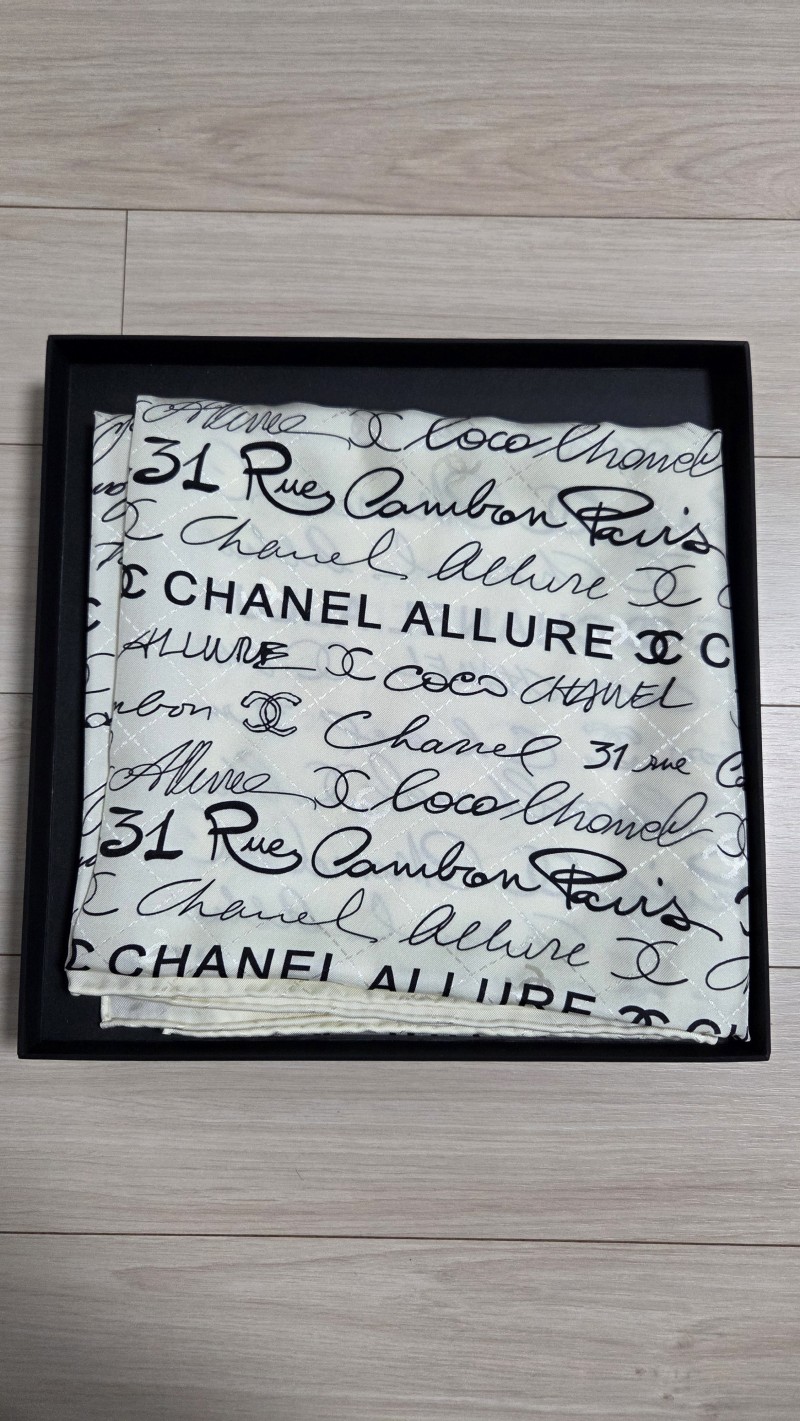 Allure Coco Chanel
31 Rue Cambon Paris
Chanel Allure
CHANEL ALLURE C
ALLURE COCO CHANEL
mbon Chanel 31 rue
Allure Coco Chanel
31 Rue Cambon Paris
Chanel Allure
CHANEL ALLURE